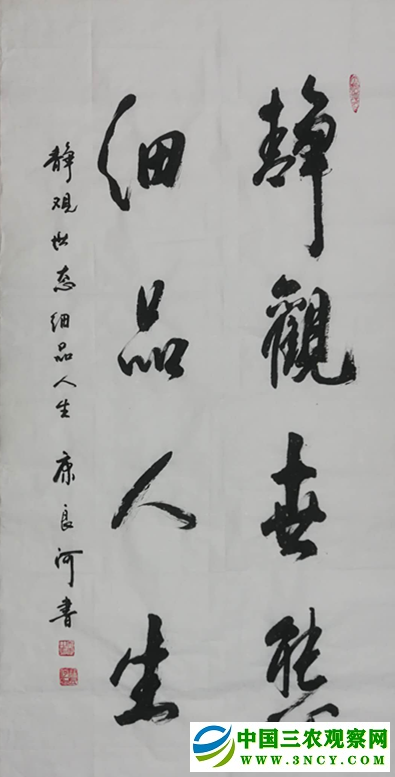 靜觀世態
細品人生
静观世态细品人生 康良河書
中国三农观察网
WWW.3NCY.COM